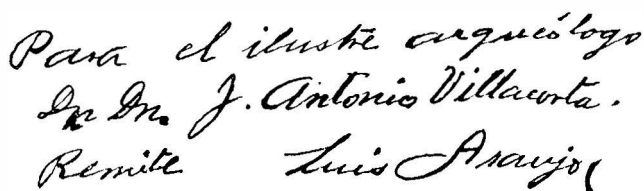 Para el ilustre arqueólogo
Dn Dn. J. Antonio Villacorta.
Remite Luis Araujo